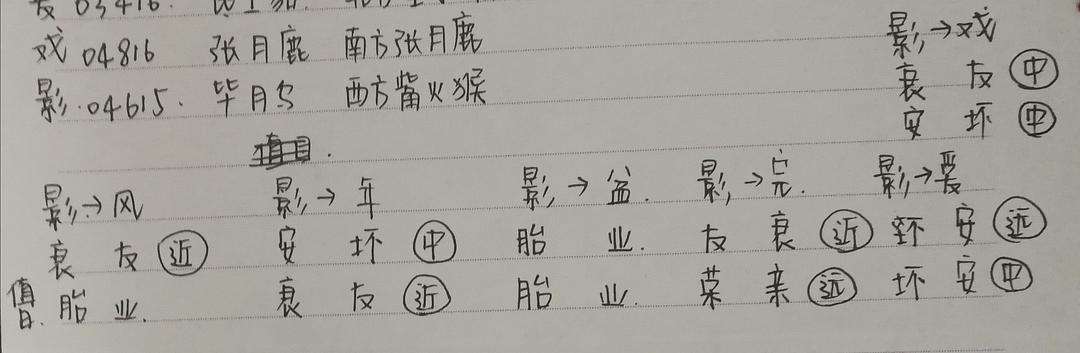 友 03416.
戏 04816 张月鹿 南方张月鹿 影→戏
影 04615. 毕月乌 西方觜火猴 衰 友 中
安 坏 中
影→风 影→年 影→盆. 影→完. 影→爱
衰 友 近 安 坏 中 胎 业. 友 衰 近 坏 安 远
值日. 胎 业. 衰 友 近 胎 业. 荣 亲 远 坏 安 中